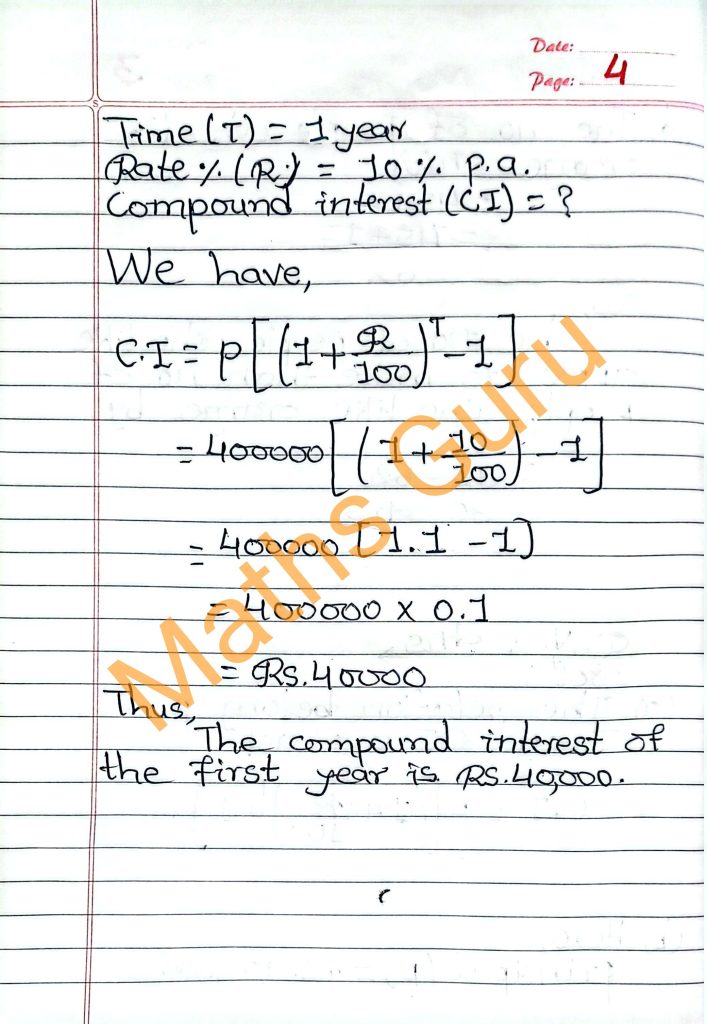 Date:
Page: 4
Time (T) = 1 year
Rate % (R) = 10 % p.a.
Compound interest (CI) = ?
We have,
C.I = P[(1+R/100)^T-1]
= 400000[(1+10/100)-1]
= 400000 [1.1 -1]
= 400000 x 0.1
= Rs.40000
Thus,
The compound interest of
the first year is Rs.40,000.
Maths Guru